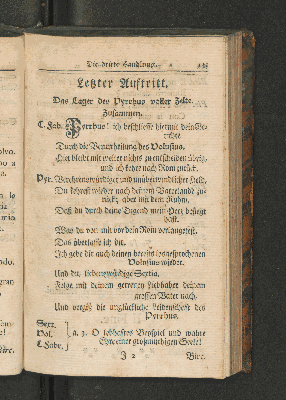 Die dritte Handlung.
Letzter Auftritt.
Das Lager des Pyrrhus voller Zelte.
Zusammen.
C. Fab. Pyrrhus! ich beschliesse hiermit
Durch die Verurtheilung des Volusius,
Hier bleibt mir weiter nichts zu entscheiden übrig,
und ich kehre nach Rom zurük.
Pyr. Verehrenswürdiger und unüberwindlicher Held,
Du kehrest wieder nach deinem Vaterlande zu-
rück; aber mit dem Ruhm,
Daß du durch deine Tugend mein Herz besiegt
hast.
Was du von mir vor dein Rom verlangtest,
Das überlasse ich dir.
Ich gebe dir auch deinen bereits losgesprochenen
Volusius wieder.
Und du, liebenswürdige Sextia,
Folge mit deinem getreuen Liebhaber deinem
grossen Vater nach.
Und vergiß die unglückliche Leidenschaft des
Pyrrhus.
Sext.
Vol. a. 3. O lebhaftes Beyspiel und wahre
C. Fabr. Ehre einer großmüthigen Seele!
J 2 Bire.